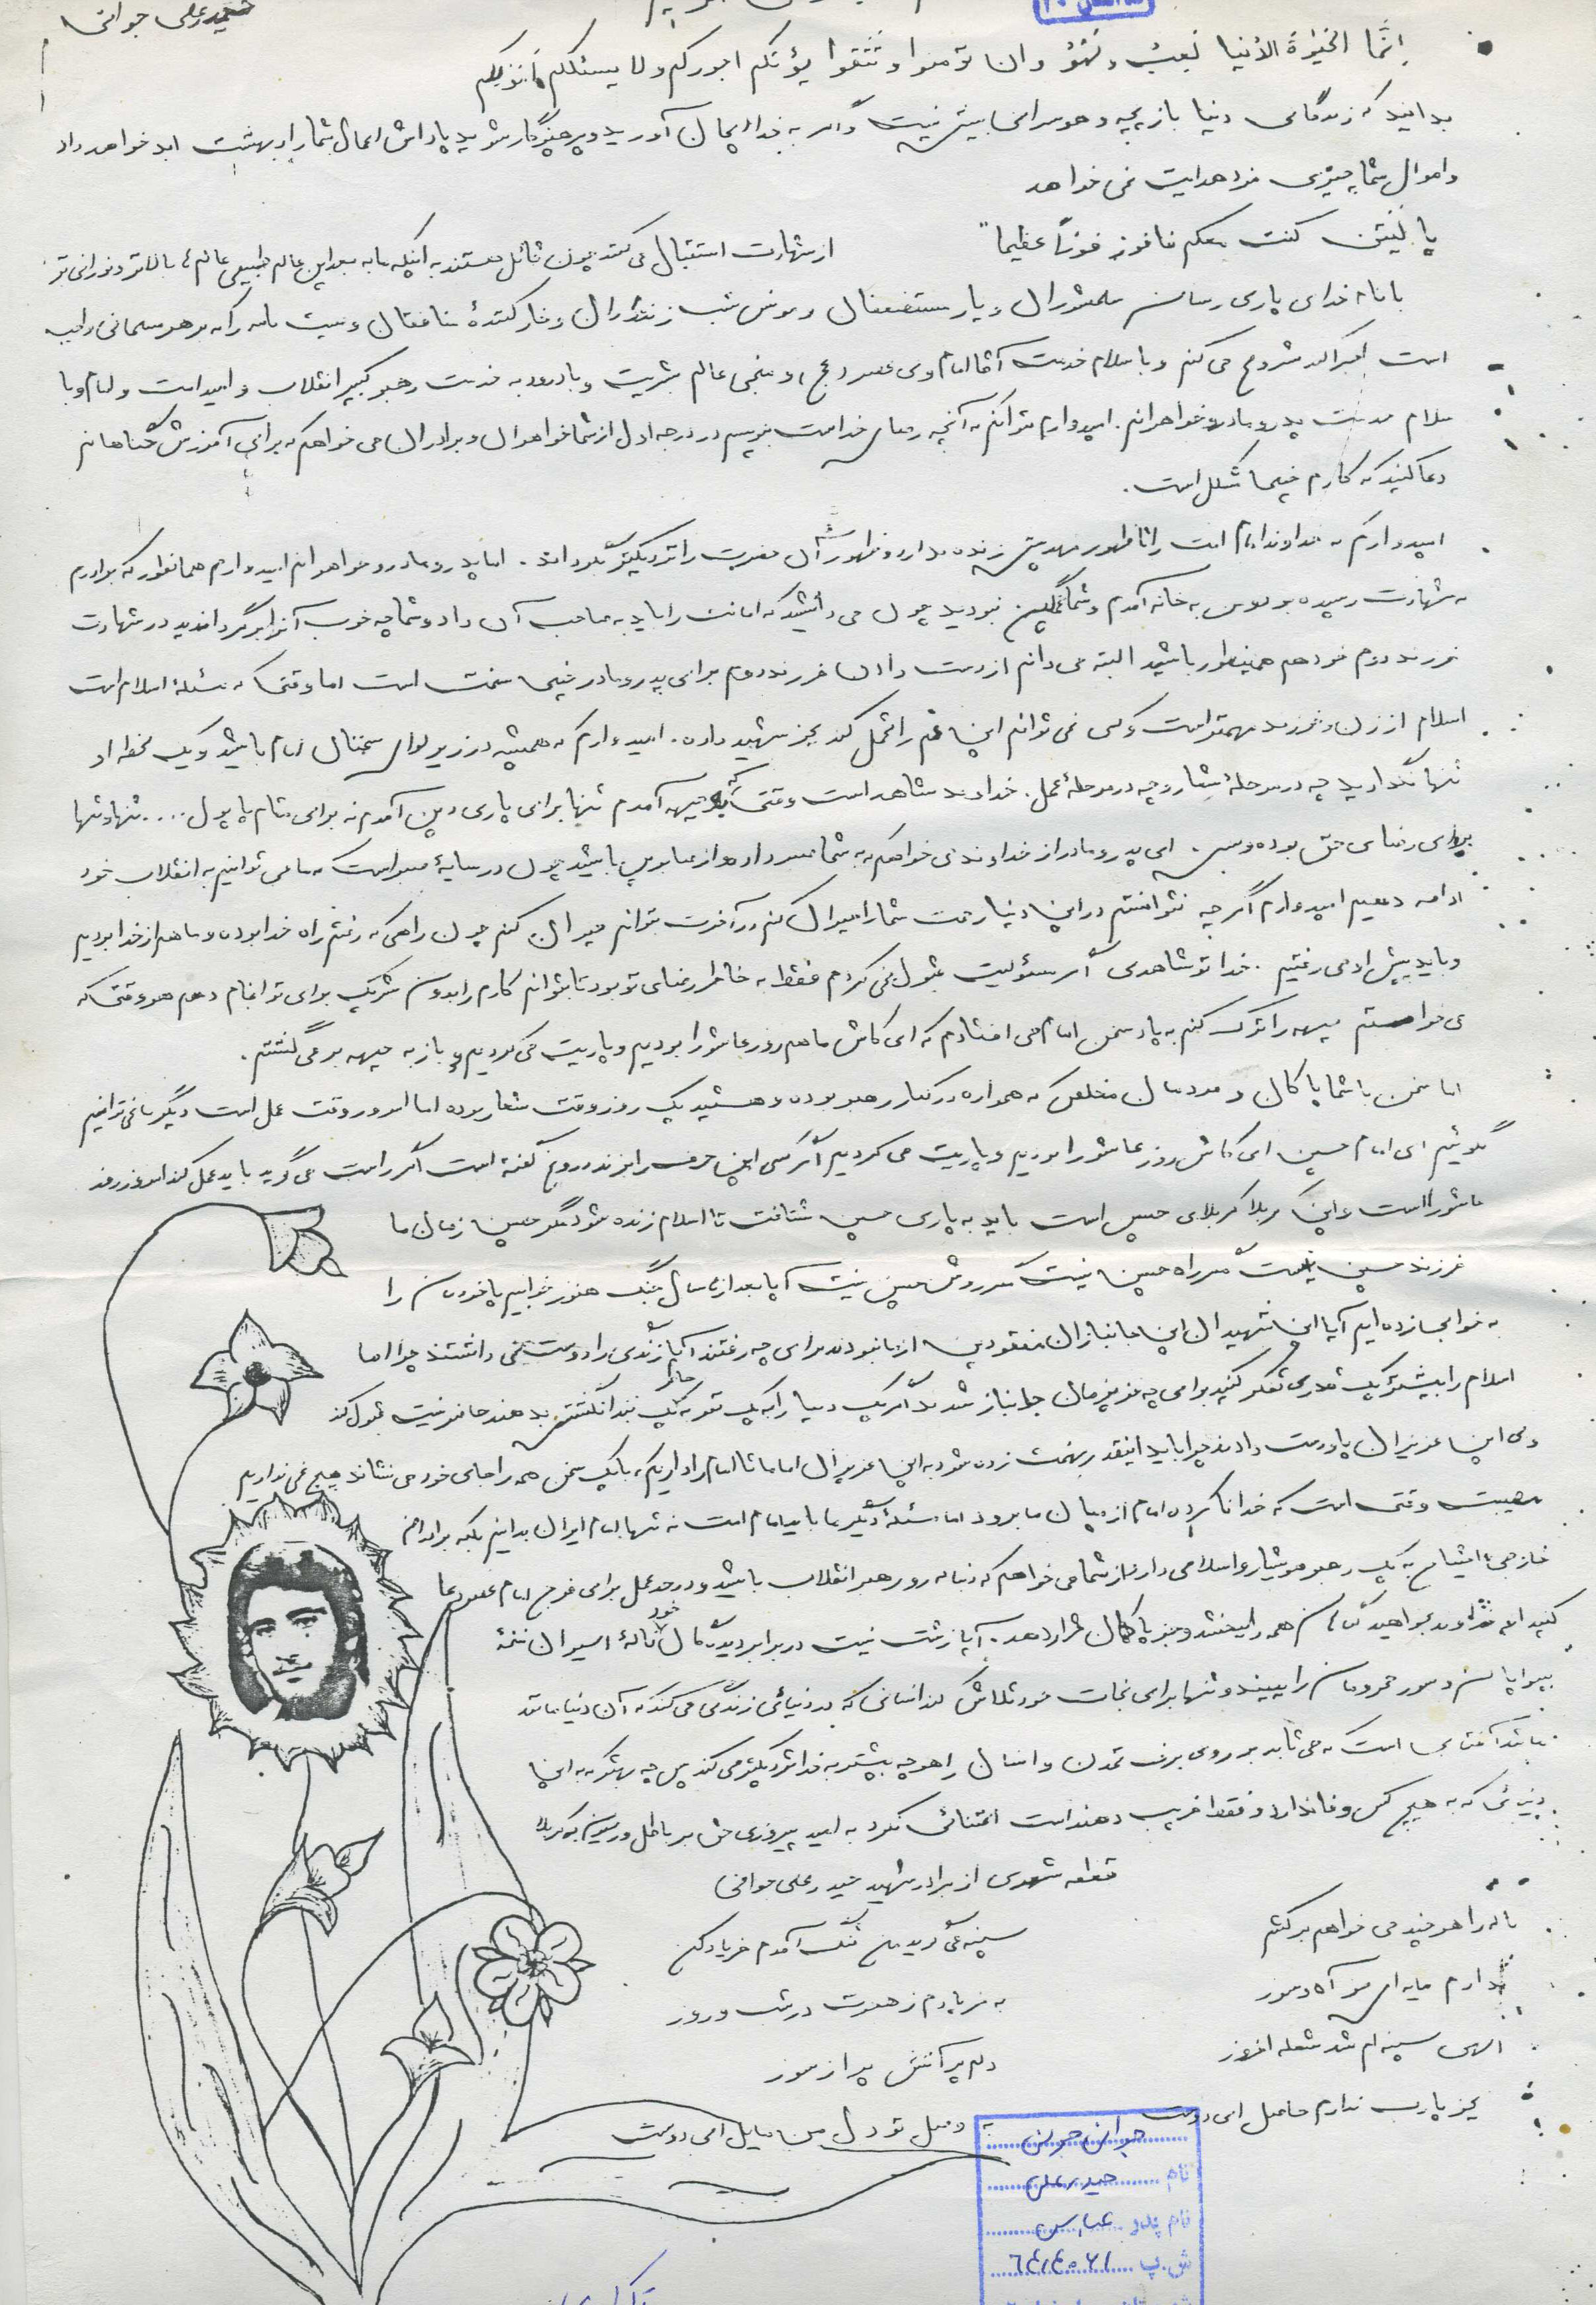 حیدرعلی جوانی
انما الحیوة الدنیا لعب و لهو و ان تؤمنوا و تتقوا یؤتکم اجورکم و لا یسئلکم اموالکم
بدانید که زندگانی دنیا بازیچه و هوسرانی بیش نیست و اگر به خدا ایمان آورید و پرهیزگار شوید پاداش اعمال شما را در بهشت ابد خواهد داد
و اموال شما چیزی مزد هدایت نمی خواهد
یا لیتنی کنت معکم فافوز فوزاً عظیما"
از شهادت استقبال می کنند چون قائل هستند به اینکه ما به بعد این عالم طبیعی عالم بالاتر و نورانی تر
با نام خدای یاری رسان و یار مستضعفان و مونس شب زنده داران و خار کننده منافقان وصیت نامه را که بر هر مسلمانی واجب
است شروع می کنم و با سلام خدمت آقا امام ولی عصر (عج) و منجی عالم بشریت و با درود به خدمت رهبر کبیر انقلاب و امید امت و امام و با
سلام خدمت پدر و مادر و خواهرانم. امیدوارم بتوانم به آنچه رضای خداست برسم در درجه اول از شما خواهران و برادران می خواهم که برای آمرزش گناهانم
دعا کنید که کارم خیلی مشکل است.
امیدوارم که خداوند امام امت را تا ظهور مهدیش زنده بدارد و ظهور آن حضرت را نزدیکتر بگرداند. اما پدر و مادر و خواهرانم امیدوارم همانطور که برادرم
به شهادت رسیده بود من به خانه آمدم و شما غمگین نبودید چون می دانستید که امانت را باید به صاحب آن داد و شما چه خوب آنرا برگرداندید در شهادت
فرزند دوم خود هم همینطور باشید البته می دانم از دست دادن فرزند دوم برای پدر و مادر خیلی سخت است اما وقتی که مسئله اسلام است
اسلام از زن و فرزند مهمتر است و کسی نمی تواند این غم را تحمل کند بجز شهید داده. امیدوارم که همیشه در زیر لوای سخنان امام باشید و یک لحظه او
تنها نگذارید چه در مرحلهٔ شعار و چه در مرحلهٔ عمل. خداوند شاهد است وقتی که به جبهه آمدم تنها برای یاری دین آمدم نه برای مقام یا پول .... تنها و تنها
برای رضای حق بوده و بس. ای پدر و مادر از خداوند می خواهم که به شما صبر دهد و از صابرین باشید چون در سایهٔ صبر است که ما می توانیم به انقلاب خود
ادامه دهیم امیدوارم اگر چه نتوانستم در این دنیا زحمت شما را جبران کنم در آخرت بتوانم جبران کنم چون راهی که رفتم راه خدا بوده و ما هم از خدا بودیم
و باید پیش او می رفتیم. خدا تو شاهدی اگر مسئولیت قبول می کردم فقط به خاطر رضای تو بود تا بتوانم کارم را بدون شریک برای تو انجام دهم هر وقتی که
می خواستم جبهه را ترک کنم به یاد سخن امام می افتادم که ای کاش ما هم روز عاشورا بودیم و یاریت می کردیم و باز به جبهه بر می گشتم.
اما سخن با شما پاکان و مردمان مخلص که همواره در کنار رهبر بوده و هستید یک روز وقت شعار بوده اما امروز وقت عمل است دیگر ما نمی توانیم
بگوئیم ای امام حسین ای کاش روز عاشورا بودیم و یاریت می کردیم اگر کسی این حرف را بزند دروغ گفته است اگر راست می گوید باید عمل کند امروز روز
عاشورا است و این کربلا کربلای حسین است باید به یاری حسین شتافت تا اسلام زنده شود مگر حسین زمان ما
فرزند حسین نیست مگر راه حسین نیست مگر روش حسین نیست آیا بعد از سال جنگ هنوز خوابیم یا خودمان را
به خواب زده ایم آیا این شهیدان این جانبازان مفقودین از ما نبودند برای چه رفتند آیا زندگی را دوست نمی داشتند چرا اما
اسلام را بیشتر یک قدری تفکر کنید برای چه عزیزمان جانباز شد اگر یک دنیا را به یک تو که یک بند انگشتش بدهند حاضر نیست قبول کند
ولی این عزیزان پا و دست دادند چرا باید اینقدر تهمت زده شود به این عزیزان اما ما تا امام را داریم که با یک سخن همه را جای خود می نشاند هیچ غمی نداریم
مصیبت وقتی است که خدا نا کرده امام از میان ما برود اما مسئلهٔ دیگر ما باید امام امت نه تنها امام ایران بدانیم بلکه برادران
خارجی احتیاج به یک رهبر هوشیار و اسلامی دارند از شما می خواهم که دنباله رو رهبر انقلاب باشید و در حد عمل برای فرج امام عصر دعا
کنید خداوند همه را ببخشد و جزء پاکان قرار دهد. آیا زشت نیست در برابر دیدگان خود نالهٔ اسیران
و محرومان را ببیند و تنها برای نجات خود تلاش کند انسانی که در دنیائی زندگی می کند که آن دنیا مانند
مانند آفتابی است که می تابد بر روی برف تمدن و انسان را هر چه بیشتر به خدا نزدیکتر می کند پس چه بهتر که به این
دنیائی که به هیچ کس وفا ندارد و فقط فریب دهنده است اعتنائی نکرد به امید پیروزی حق بر باطل و رسیدن به کربلا
قطعه شعری از برادر شهید حیدرعلی جوانی
ناله را هر چند می خواهم بر کشم
سینه می گوید من تنگ آمدم فریاد کن
ندارم مایه ای جز آه و سوز
به فریادم ز هجرت در شب و روز
الهی سینه ام شد شعله افروز
دلم پر آتش پر از سوز
بجز یارب ندارم حاصل ای دوست
به وصل تو دل من مایل ای دوست
نام حیدرعلی
نام پدر عباس
ش.پ